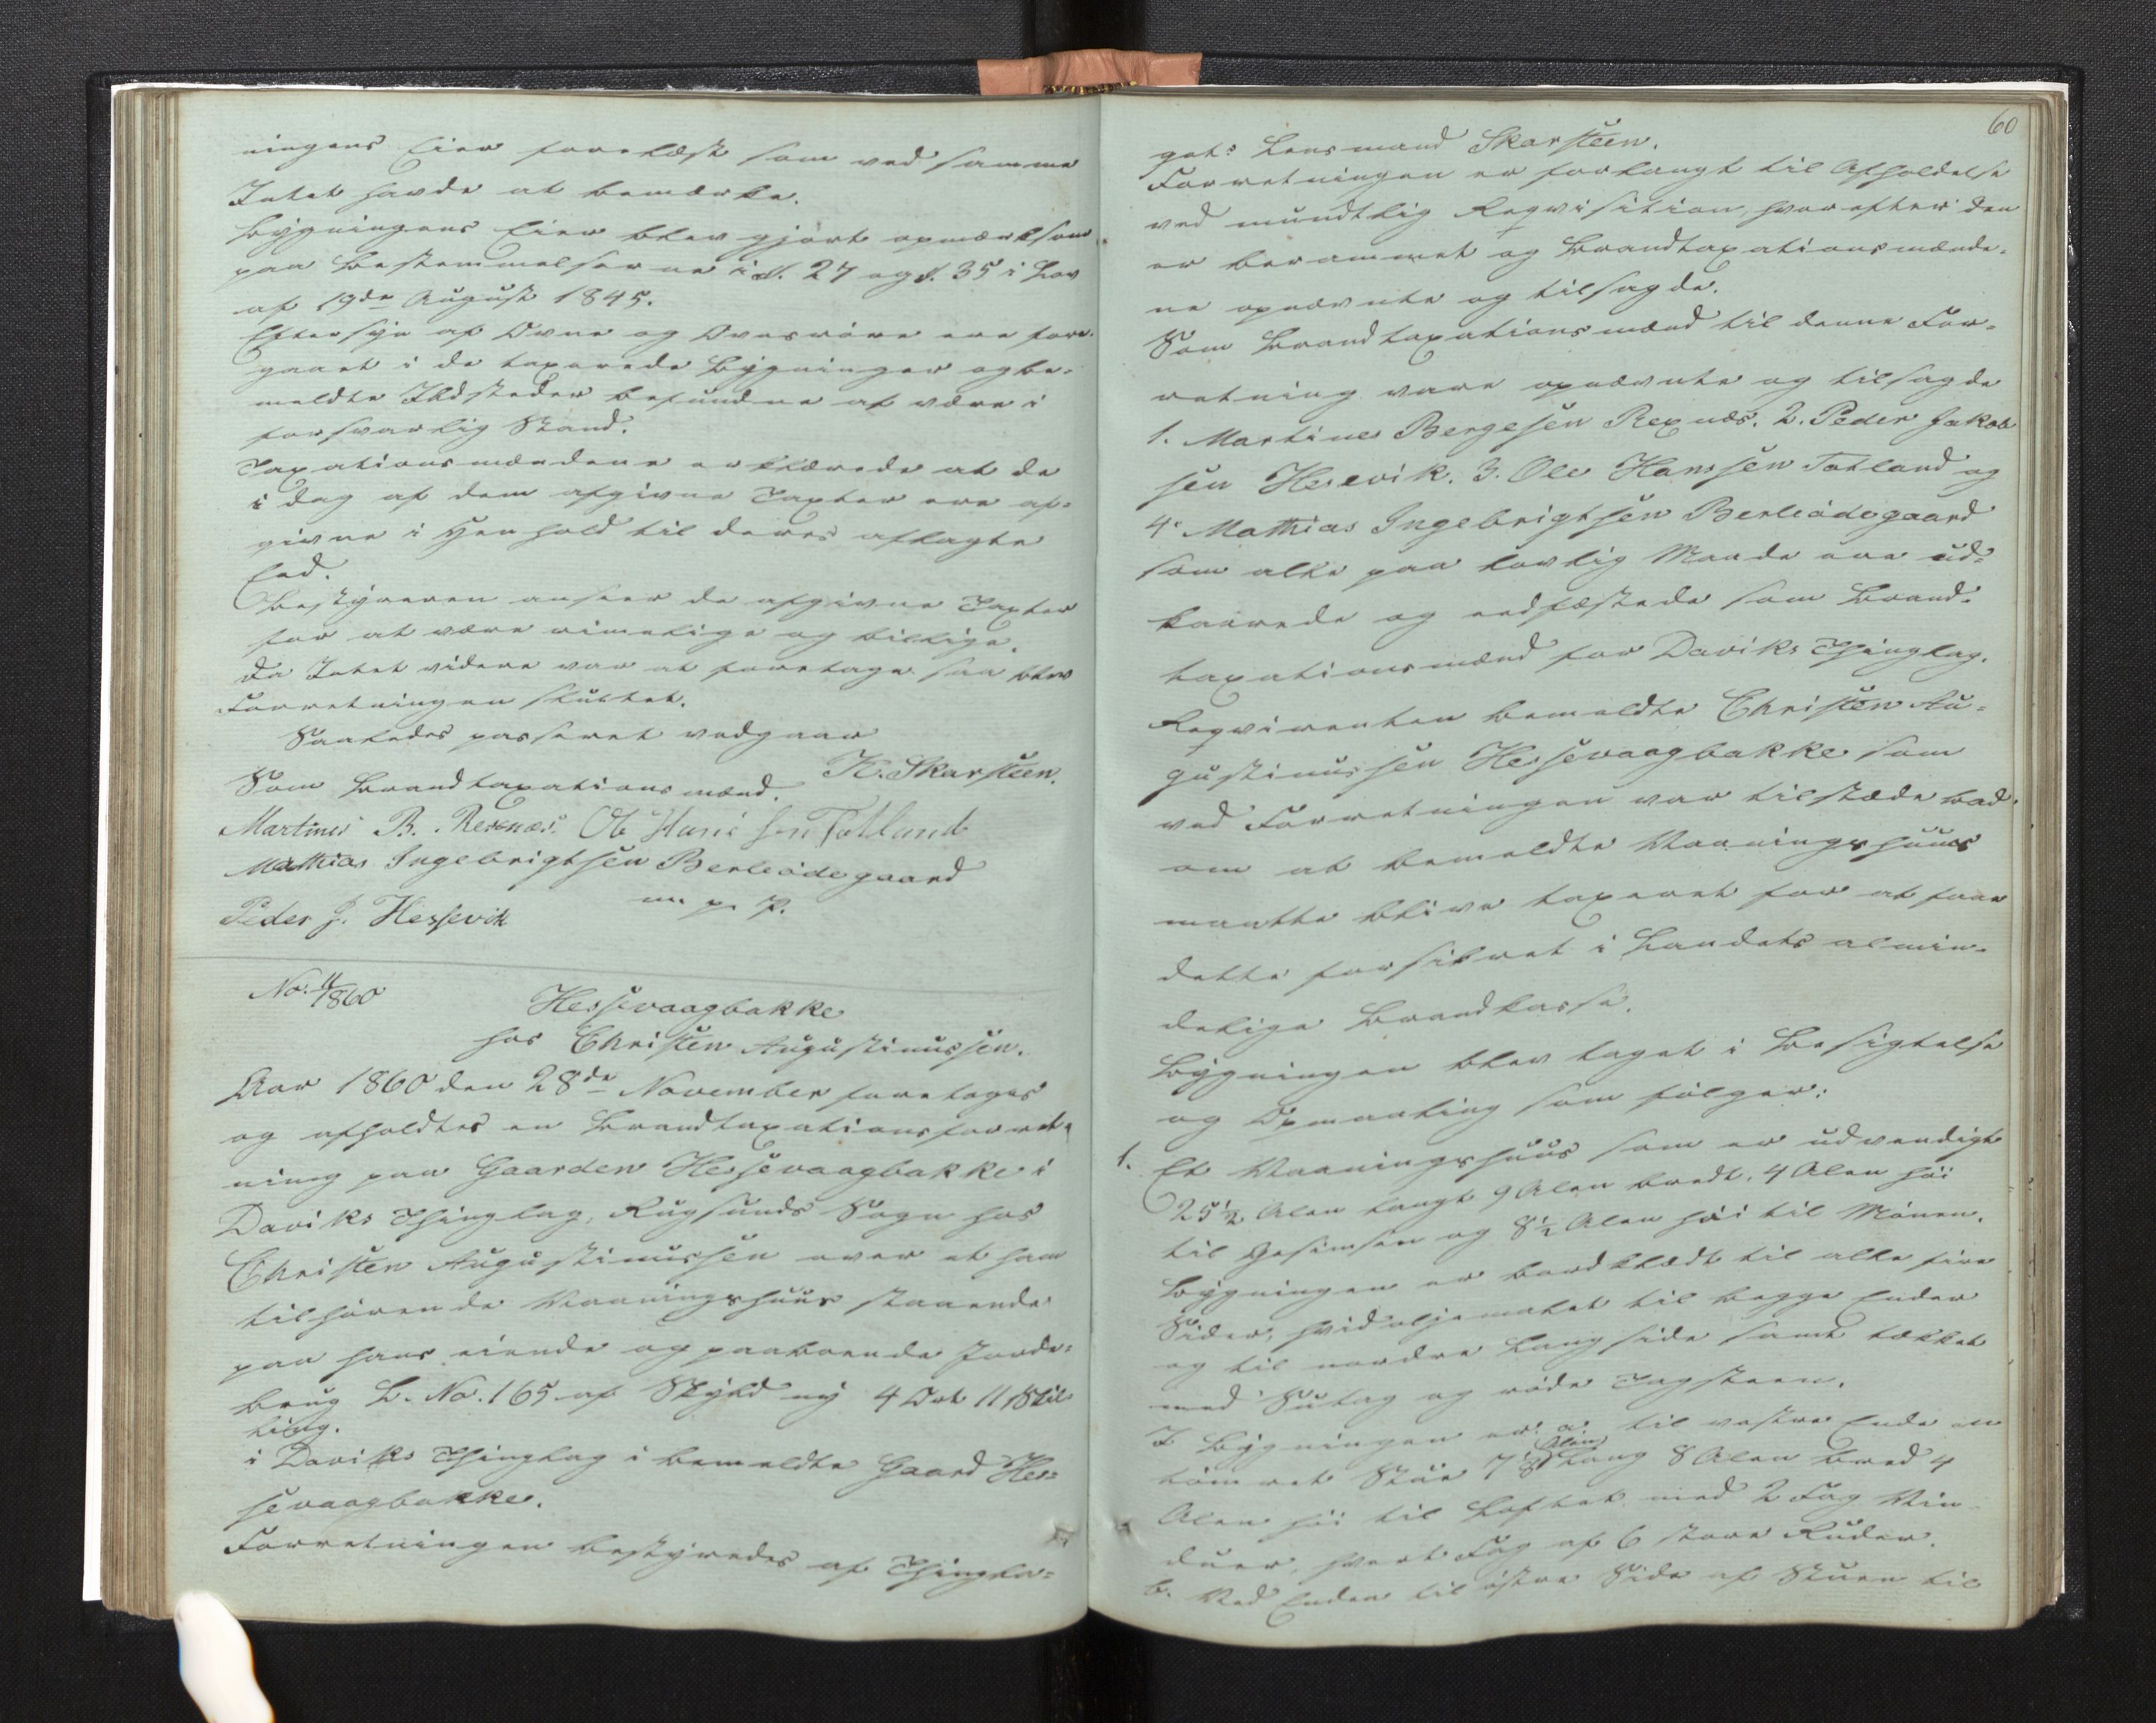 ningens Eier forelæst som ved samme
Intet havde at bemærke.
Bygningens Eier blev gjort opmærksom
paa Bestemmelserne i §. 27 og §. 35 i Lov
af 19de August 1845.
Eftersyn af Ovne og Ovnsröre ere fore-
gaaet i de taxerede Bygninger og be-
meldte Ildsteder befundne at være i
forsvarlig Stand.
Taxationsmændene erklærede at de
i dag af dem afgivne Taxter ere af-
givne i Henhold til deres aflagte
Eed.
Bestyreren anseer de afgivne Taxter
for at være rimelige og billige.
Da Intet videre var at foretage saa blev
Forretningen sluttet.
Saaledes passeret vedgaaer
K. Skarsteen.
Som Brandtaxationsmænd.
Martines B. Rexnæs. Ole Hans sen Totland
Mathias Ingebrigtsen Berleödegaard
Peder J. Hessevik m. p. P.
No. 11/1860
Hessevaagbakke
hos Christen Augustinussen.
Aar 1860 den 28de November foretoges
og afholdtes en Brandtaxationsforret-
ning paa Gaarden Hessevaagbakke i
Daviks Thinglag, Rugsunds Sogn hos
Christen Augustinussen over et ham
tilhörende Vaaningshuus staaende
paa hans eiende og paaboende Jorde-
brug L. No. 165 af Skyld ny 4 Ort 11 Skil-
ling.
i Daviks Thinglag i bemeldte Gaard Hes-
sevaagbakke.
Forretningen bestyredes af Thingla-
60
gets Lensmand Skarsteen.
Forretningen er forlangt til Afholdelse
ved mundtlig Reqvisition, hvorefter den
er berammet og Brandtaxationsmænde-
ne opnævnte og tilsagde.
Som Brandtaxationsmænd til denne For-
retning vare opnævnte og tilsagde
1. Martines Bergesen Rexnæs. 2. Peder Jakob
sen Hesevik. 3. Ole Hanssen Totland og
4. Mathias Ingebrigtsen Berleödegaard
som alle paa lovlig Maade ere ud-
kaarede og eedfæstede som Brand-
taxationsmænd for Daviks Thinglag.
Reqvirenten bemeldte Christen Au-
gustinussen Hessevaagbakke som
ved Forretningen var tilstæde bad
om at bemeldte Vaaningshuus
maatte blive taxeret for at faae
dette forsikret i Landets almin-
delige Brandkasse.
Bygningen blev taget i Besigtelse
og Opmaaling som fölger:
1. Et Vaaningshuus som er udvendigt
25 1/2 Alen langt 9 Alen bredt, 4 Alen höi
til Gesimsen og 8 1/2 Alen höi til Mönen.
Bygningen er bordklædt til alle fire
Sider, hvidoljemalet til begge Ender
og til nordre Langside samt tækket
med Sutag og röde Tagsteen.
I Bygningen er: a. til vestre Ende en
tömret Stue 7 Alen lang 8 Alen bred 4
Alen höi til Loftet med 2 Fag Vin-
duer, hvert Fag af 6 store Ruder.
b. Ved Enden til östre Side af Stuen til